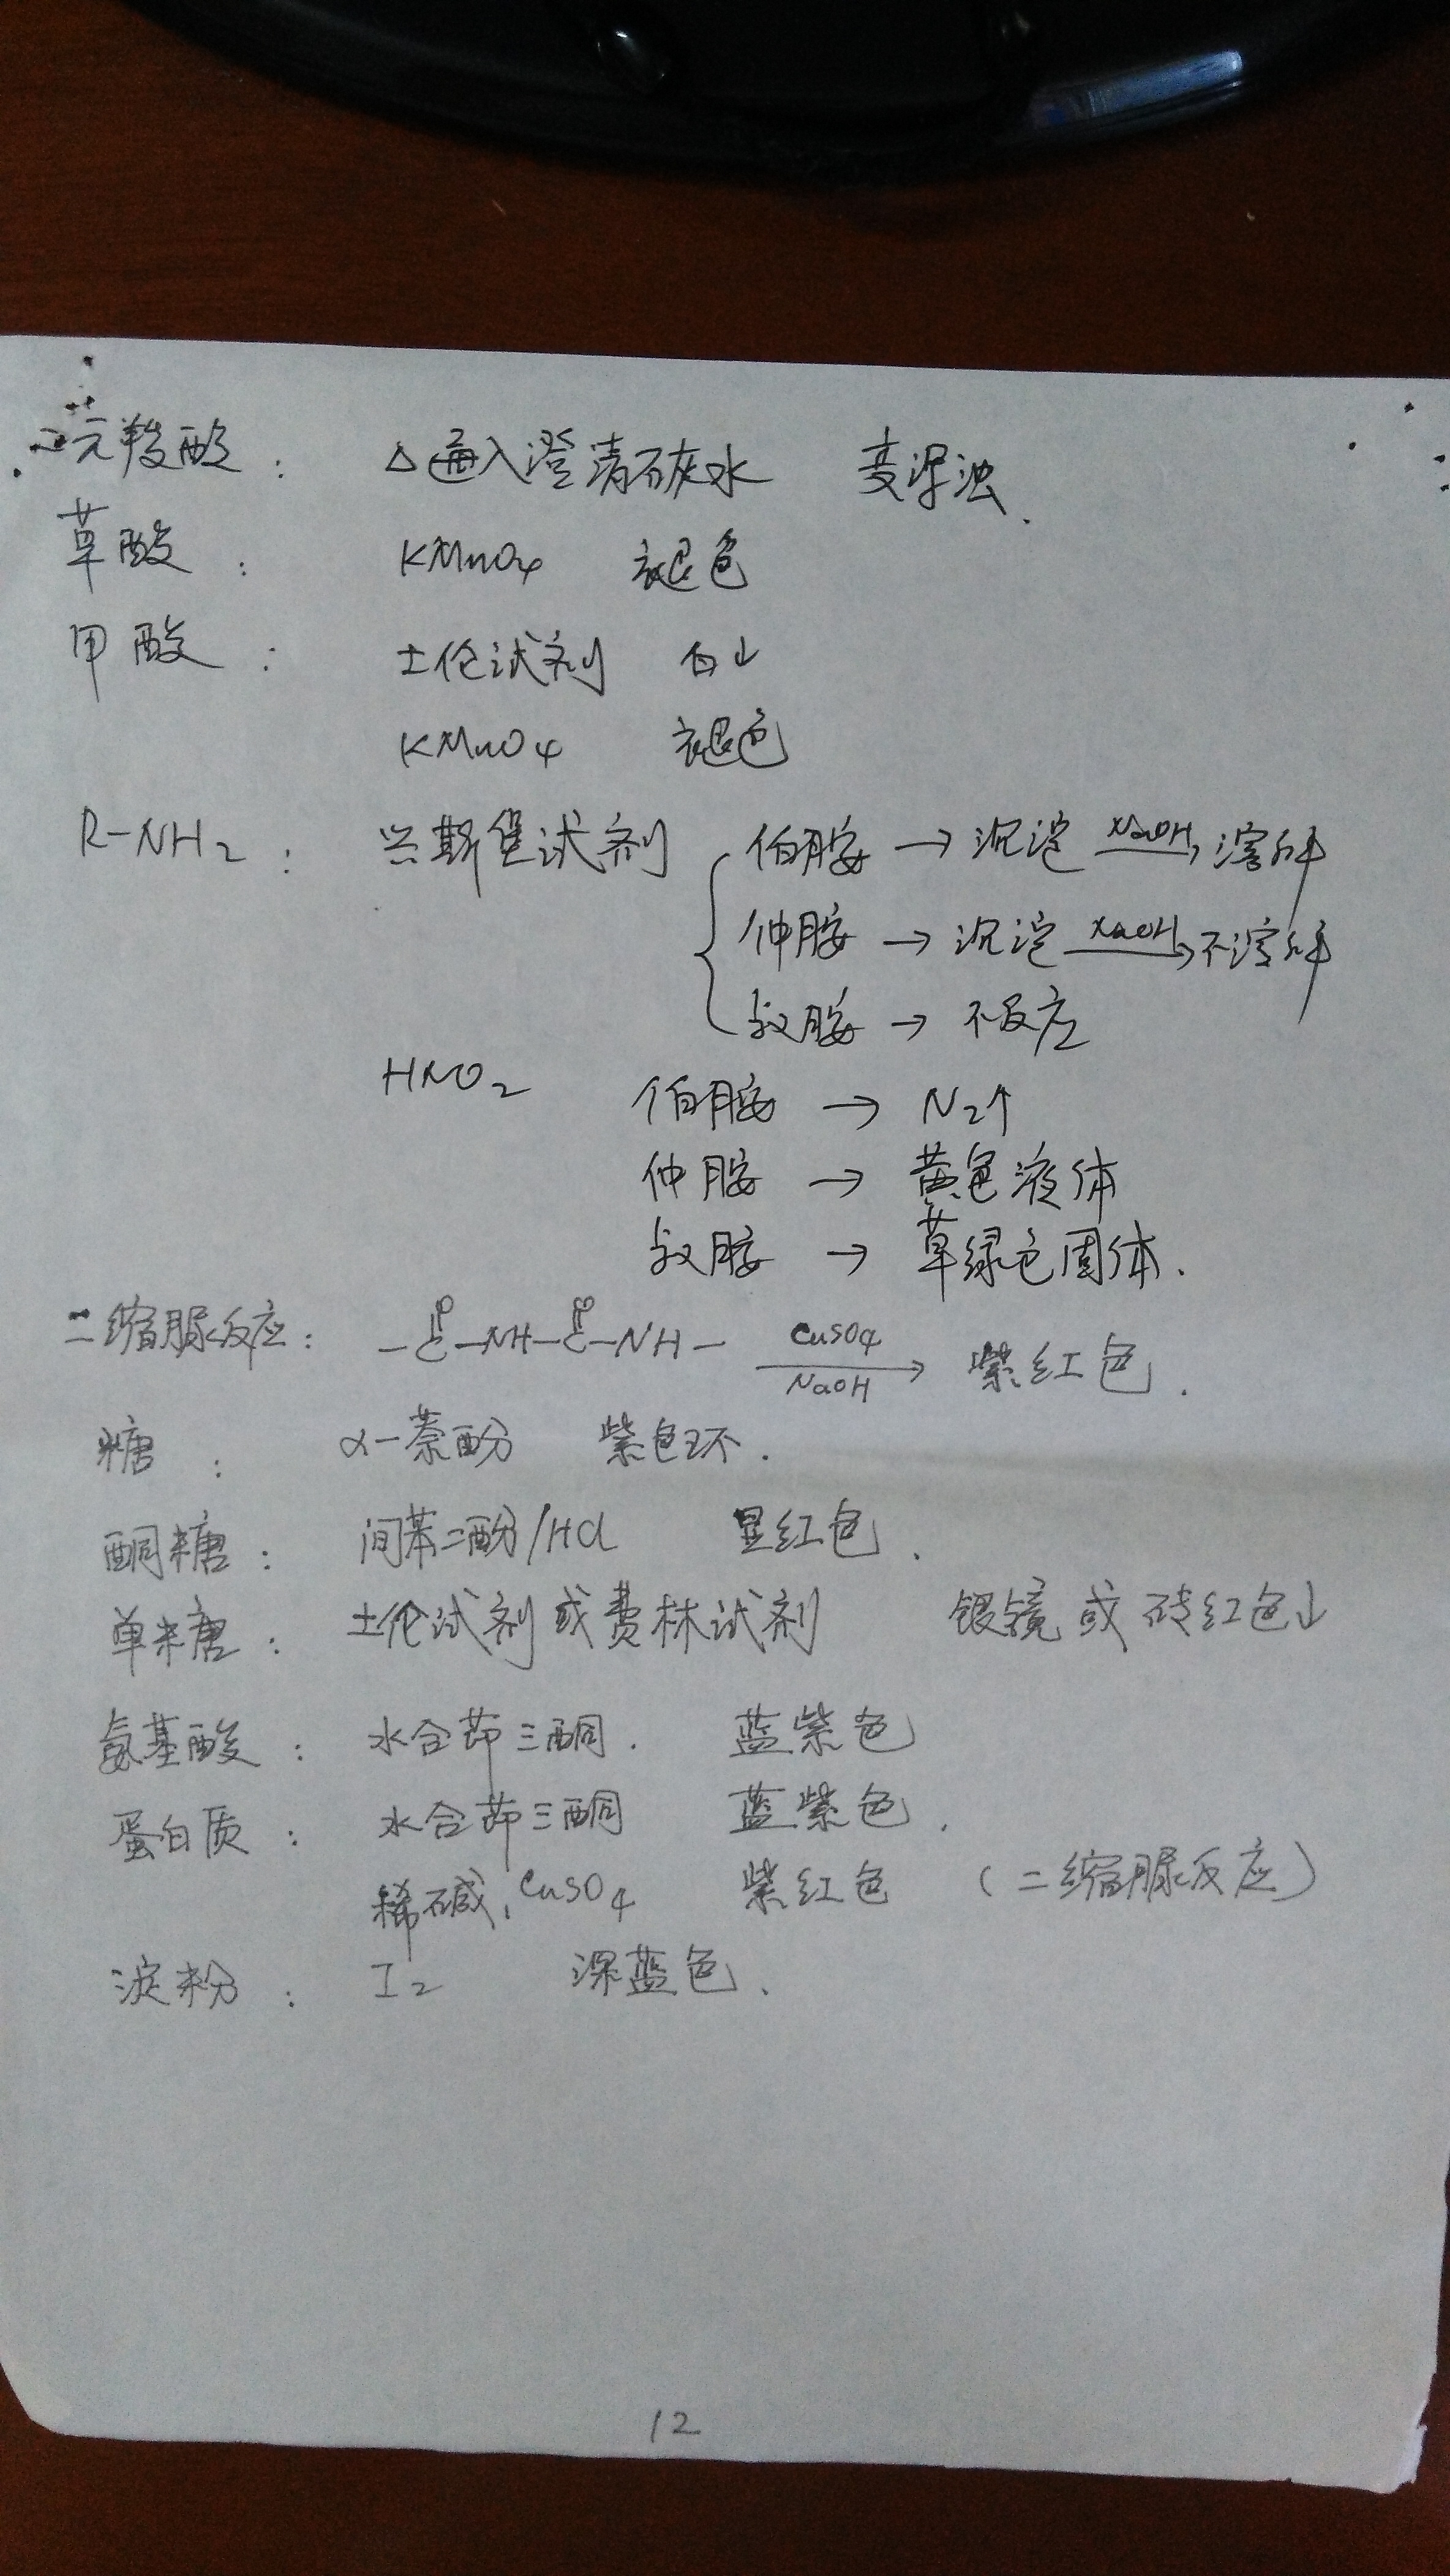 二元羧酸： △通入澄清石灰水 变浑浊.
草酸： KMnO4 褪色
甲酸： 土伦试剂 白↓
KMnO4 褪色
R-NH2： 兴斯堡试剂 { 伯胺 → 沉淀 —NaOH→ 溶解
仲胺 → 沉淀 —NaOH→ 不溶解
叔胺 → 不反应
HNO2 伯胺 → N2↑
仲胺 → 黄色液体
叔胺 → 草绿色固体.
二缩脲反应： -C(=O)-NH-C(=O)-NH- —CuSO4/NaOH→ 紫红色.
糖： α-萘酚 紫色环.
酮糖： 间苯二酚/HCl 显红色.
单糖： 土伦试剂或费林试剂 银镜或砖红色↓
氨基酸： 水合茚三酮. 蓝紫色
蛋白质： 水合茚三酮 蓝紫色.
稀碱, CuSO4 紫红色 （二缩脲反应）
淀粉： I2 深蓝色.
12